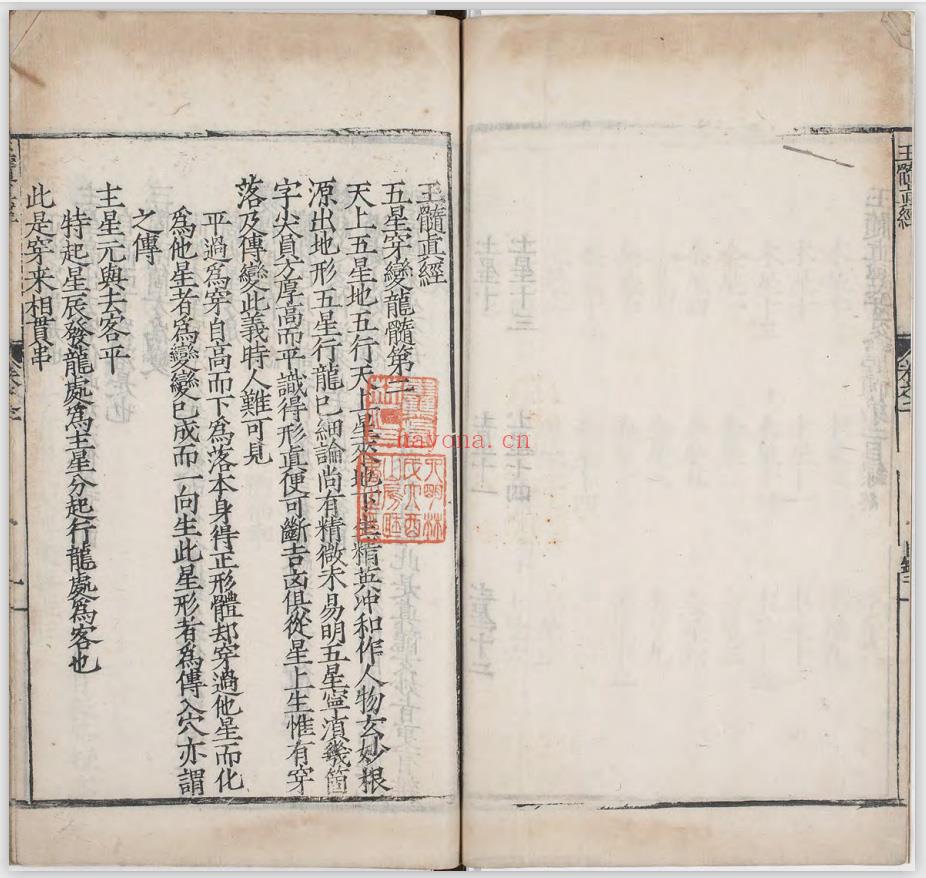 玉髓真經
玉髓真經
五星穿變龍髓第二
天上五星地五行天上星地下生精英冲和作人物玄妙根
源出地形五星行龍巳細論尚有精微未易明五星寧湏幾箇
字尖貟方厚高而平識得形真便可斷吉凶俱從星上生惟有穿
落及傳變此義時人難可見
平過爲穿自高而下爲落本身得正形體却穿過他星而化
爲他星者爲變變已成而一向生此星形者爲傳入穴亦謂
之傳
主星元與去客平
特起星辰發龍處爲主星分起行龍處爲客也
此是穿来相貫串
hayona.cn